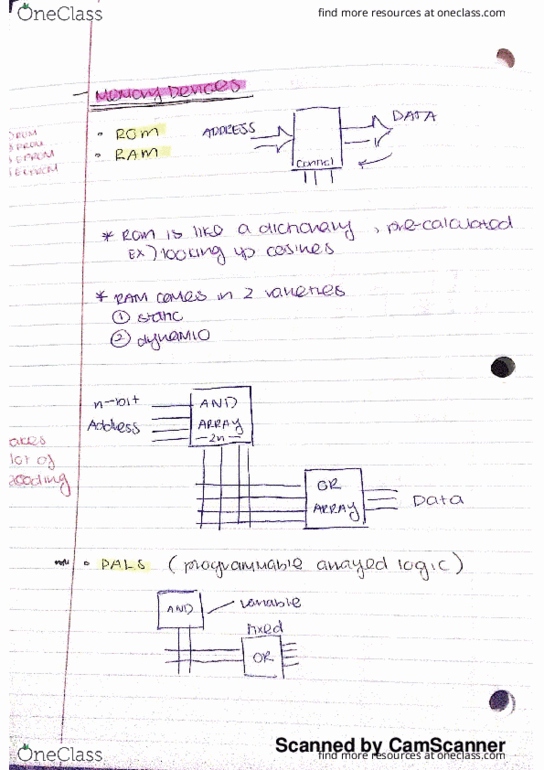 OneClass
find more resources at oneclass.com
MEMORY DEVICES
• ROM
• RAM
ADDRESS
DATA
Control
* ROM is like a dictionary, pre-calculated
EX) looking up cosines
* RAM comes in 2 varieties
① static
② dynamic
n-bit
Address
AND
ARRAY
2n
lot of
OR
ARRAY
Data
• PALS (programmable arrayed logic)
AND
variable
fixed
OR
Scanned by CamScanner
OneClass
find more resources at oneclass.com